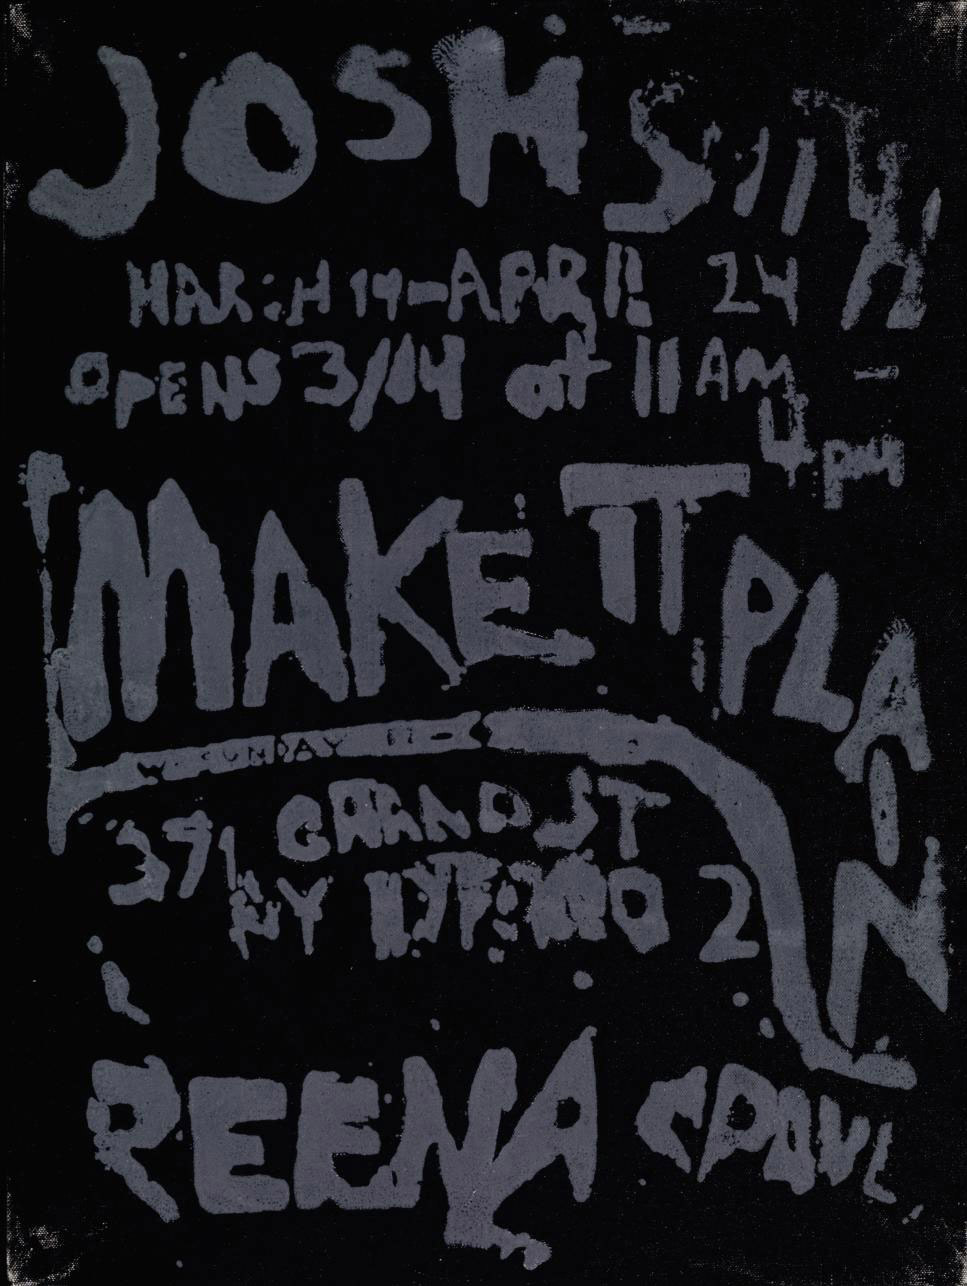 JOSH SMITH
MARCH 14-APRIL 24
OPENS 3/14 at 11 AM -
4 pm
MAKE IT PLAIN
SUNDAY
371 GRAND ST
NY NY 2
REENA SPAUL